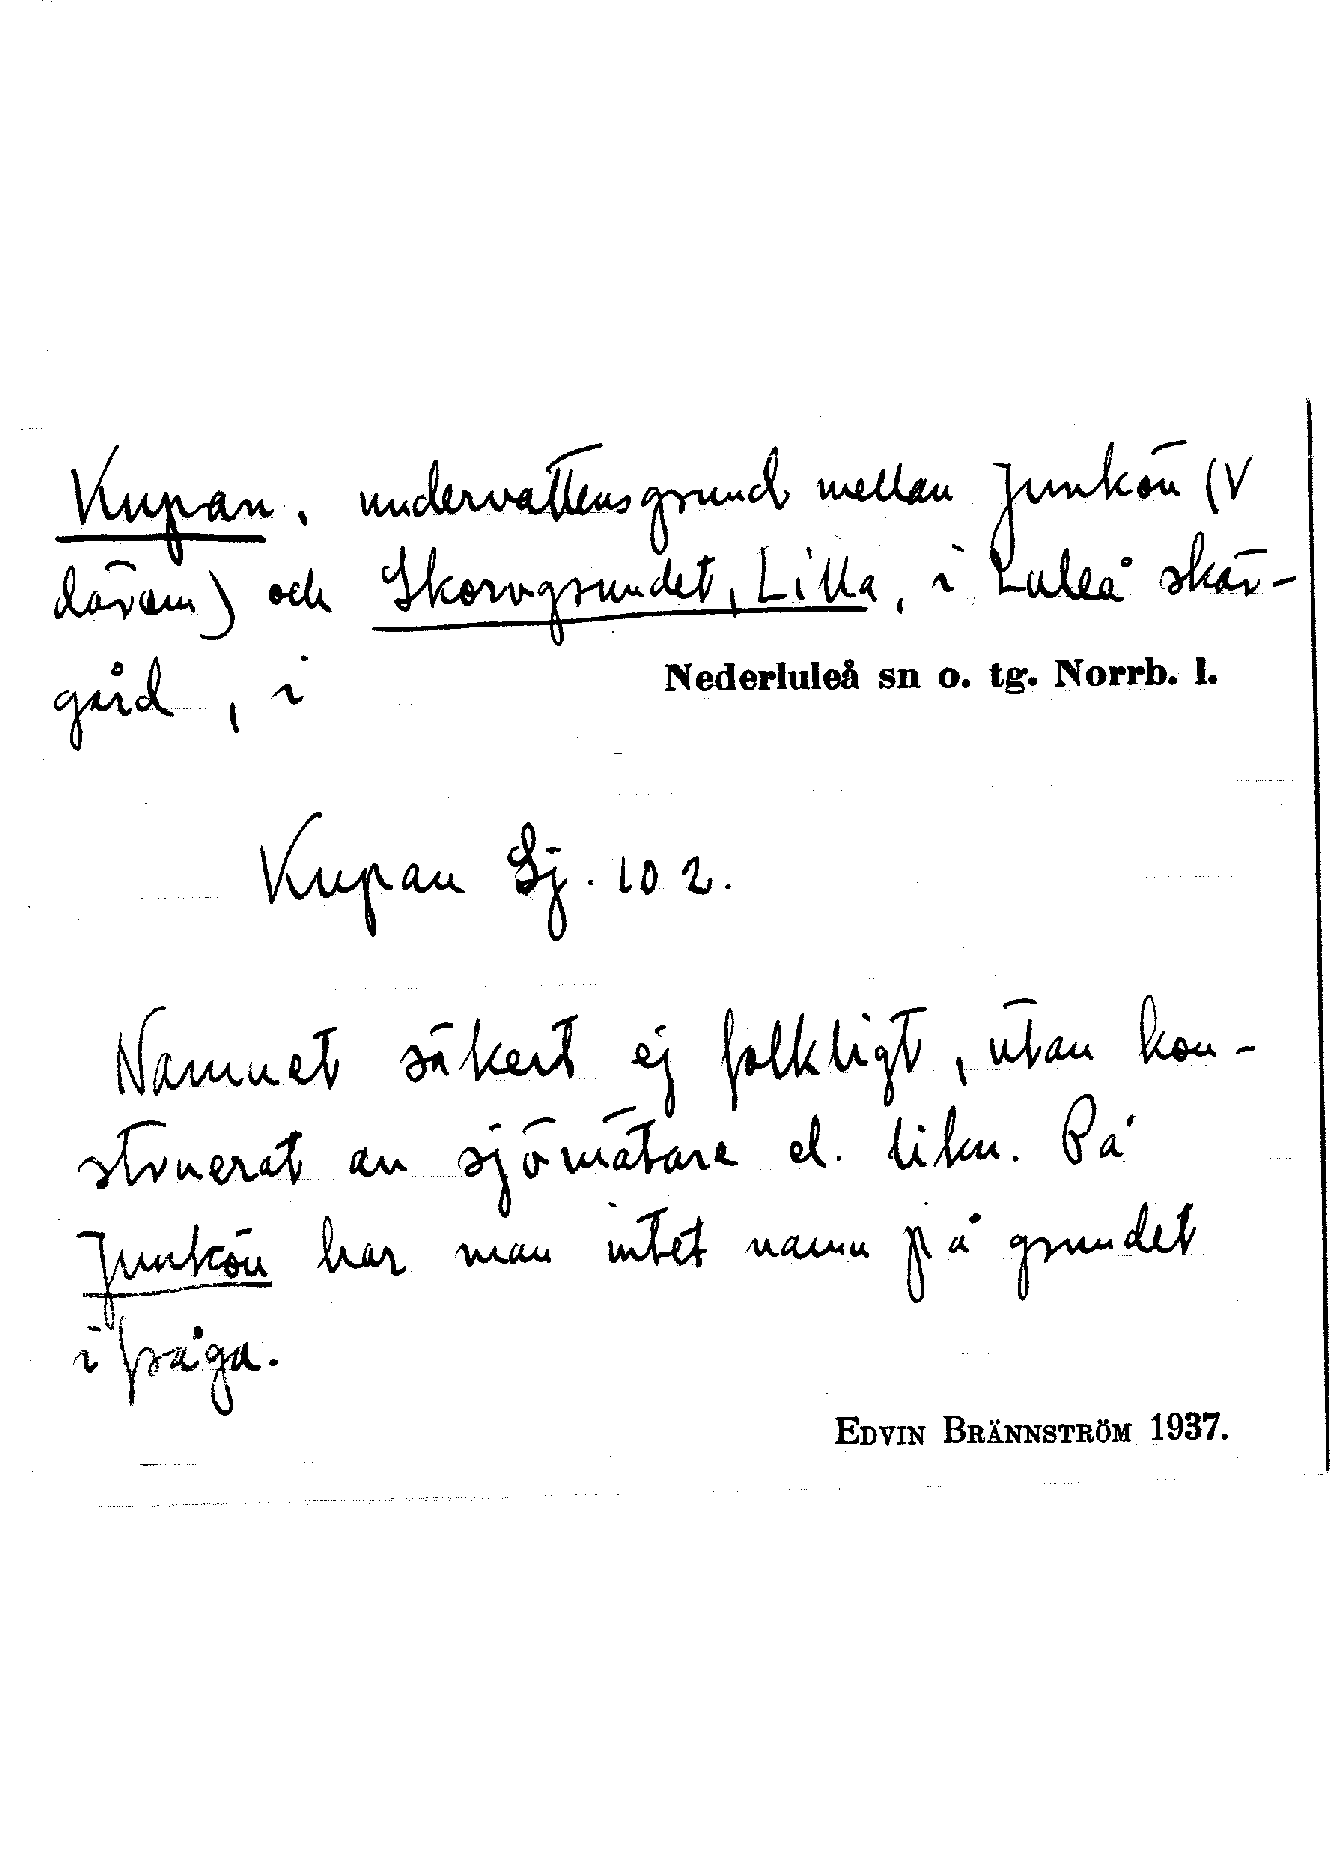 Kupan, undervattensgrund mellan Junkön (V
därom) och Skorvgrundet, Lilla, i Luleå skär-
gård, i Nederluleå sn o. tg. Norrb. l.
Kupan Sj. 102.
Namnet säkert ej folkligt, utan kon-
struerat av sjömätare el. likn. På
Junkön har man intet namn på grundet
i fråga.
EDVIN BRÄNNSTRÖM 1937.